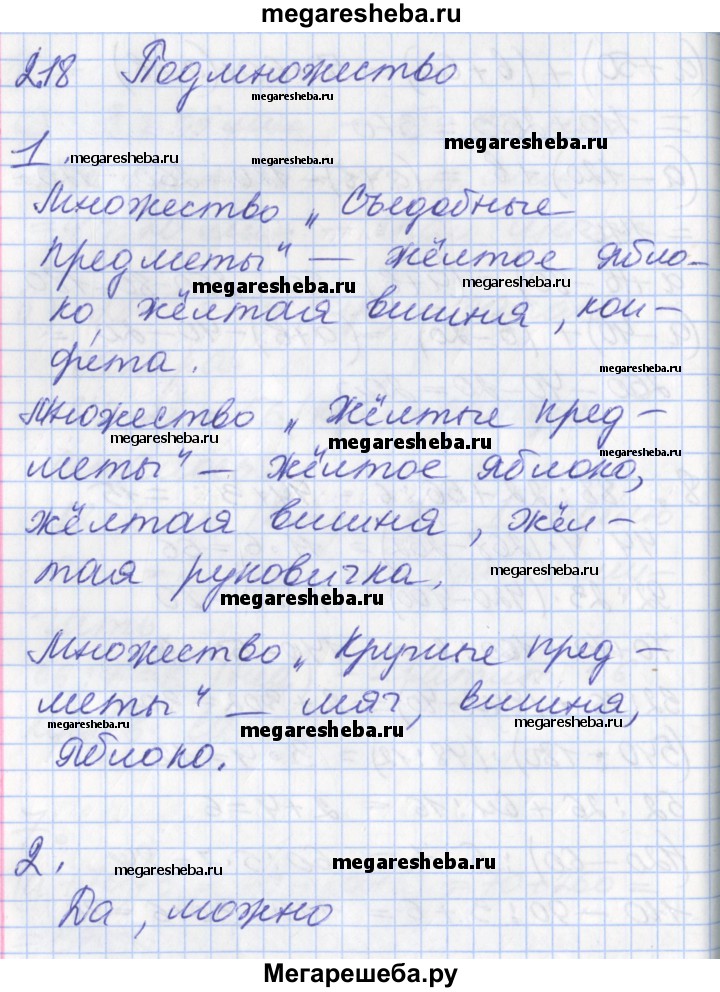 megaresheba.ru
218 Подмножество
megaresheba.ru
megaresheba.ru
1. megaresheba.ru megaresheba.ru
Множество „Съедобные
предметы“ — жёлтое ябло-
megaresheba.ru megaresheba.ru
ко, жёлтая вишня, кон-
фета.
megaresheba.ru
Множество „Жёлтые пред-
megaresheba.ru megaresheba.ru
меты“ — жёлтое яблоко,
жёлтая вишня, жёл-
megaresheba.ru
тая руковичка.
megaresheba.ru
megaresheba.ru
Множество „Круглые пред-
меты“ — мяч, вишня,
megaresheba.ru megaresheba.ru megaresheba.ru
яблоко.
2. megaresheba.ru megaresheba.ru
Да, можно
Мегарешеба.ру